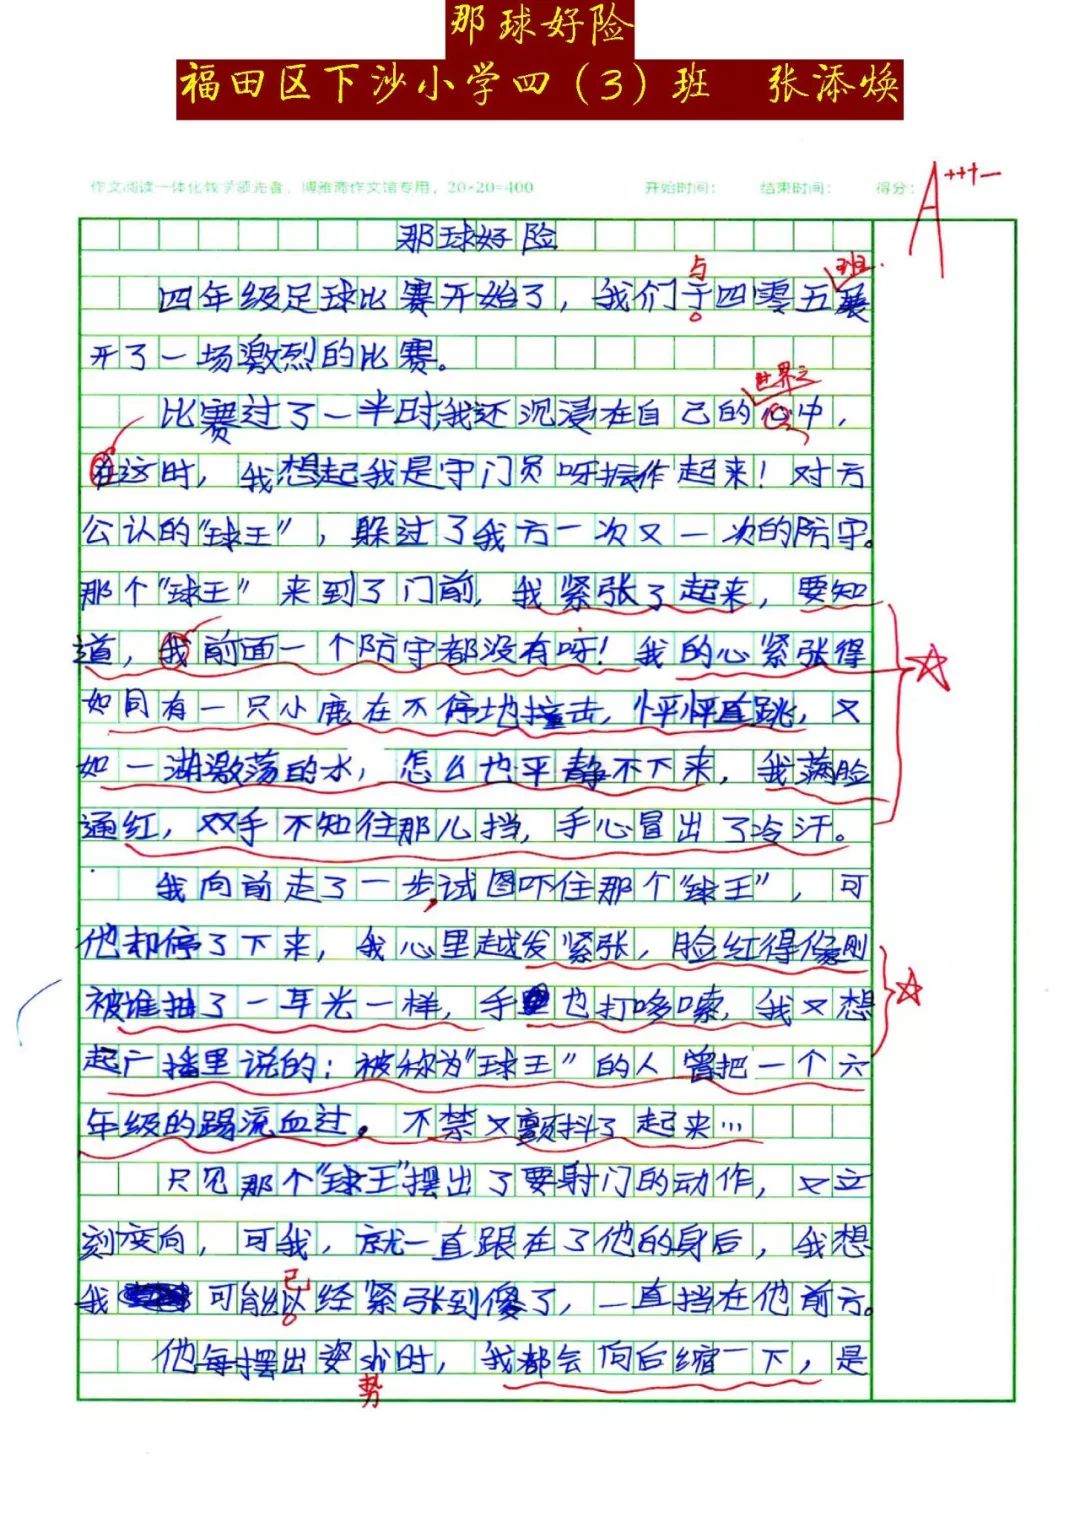 那球好险
福田区下沙小学四（3）班 张添焕
作文阅读一体化教学领先者，博雅斋作文馆专用，20×20=400 开始时间： 结束时间： 得分：
A+++-
那球好险
与 班.
四年级足球比赛开始了，我们于四零五展
开了一场激烈的比赛。
世界之
比赛过了一半时,我还沉浸在自己的心中，
在这时，我想起我是守门员呀振作起来！对方
公认的“球王”，躲过了我方一次又一次的防守。
那个“球王”来到了门前，我紧张了起来，要知
道，我前面一个防守都没有呀！我的心紧张得
如同有一只小鹿在不停地撞击，怦怦直跳，又
如一湖激荡的水，怎么也平静不下来，我满脸
通红，双手不知往那儿挡，手心冒出了冷汗。
我向前走了一步，试图吓住那个“球王”，可
他却停了下来，我心里越发紧张，脸红得像刚
被谁抽了一耳光一样，手也打哆嗦，我又想
起广播里说的：被称为“球王”的人曾把一个六
年级的踢流血过。不禁又颤抖了起来…
只见那个“球王”摆出了要射门的动作，又立
刻变向，可我，就一直跟在了他的身后，我想
已
我可能以经紧张到傻了，一直挡在他前方。
他每摆出姿水时，我都会向后缩一下，是
势